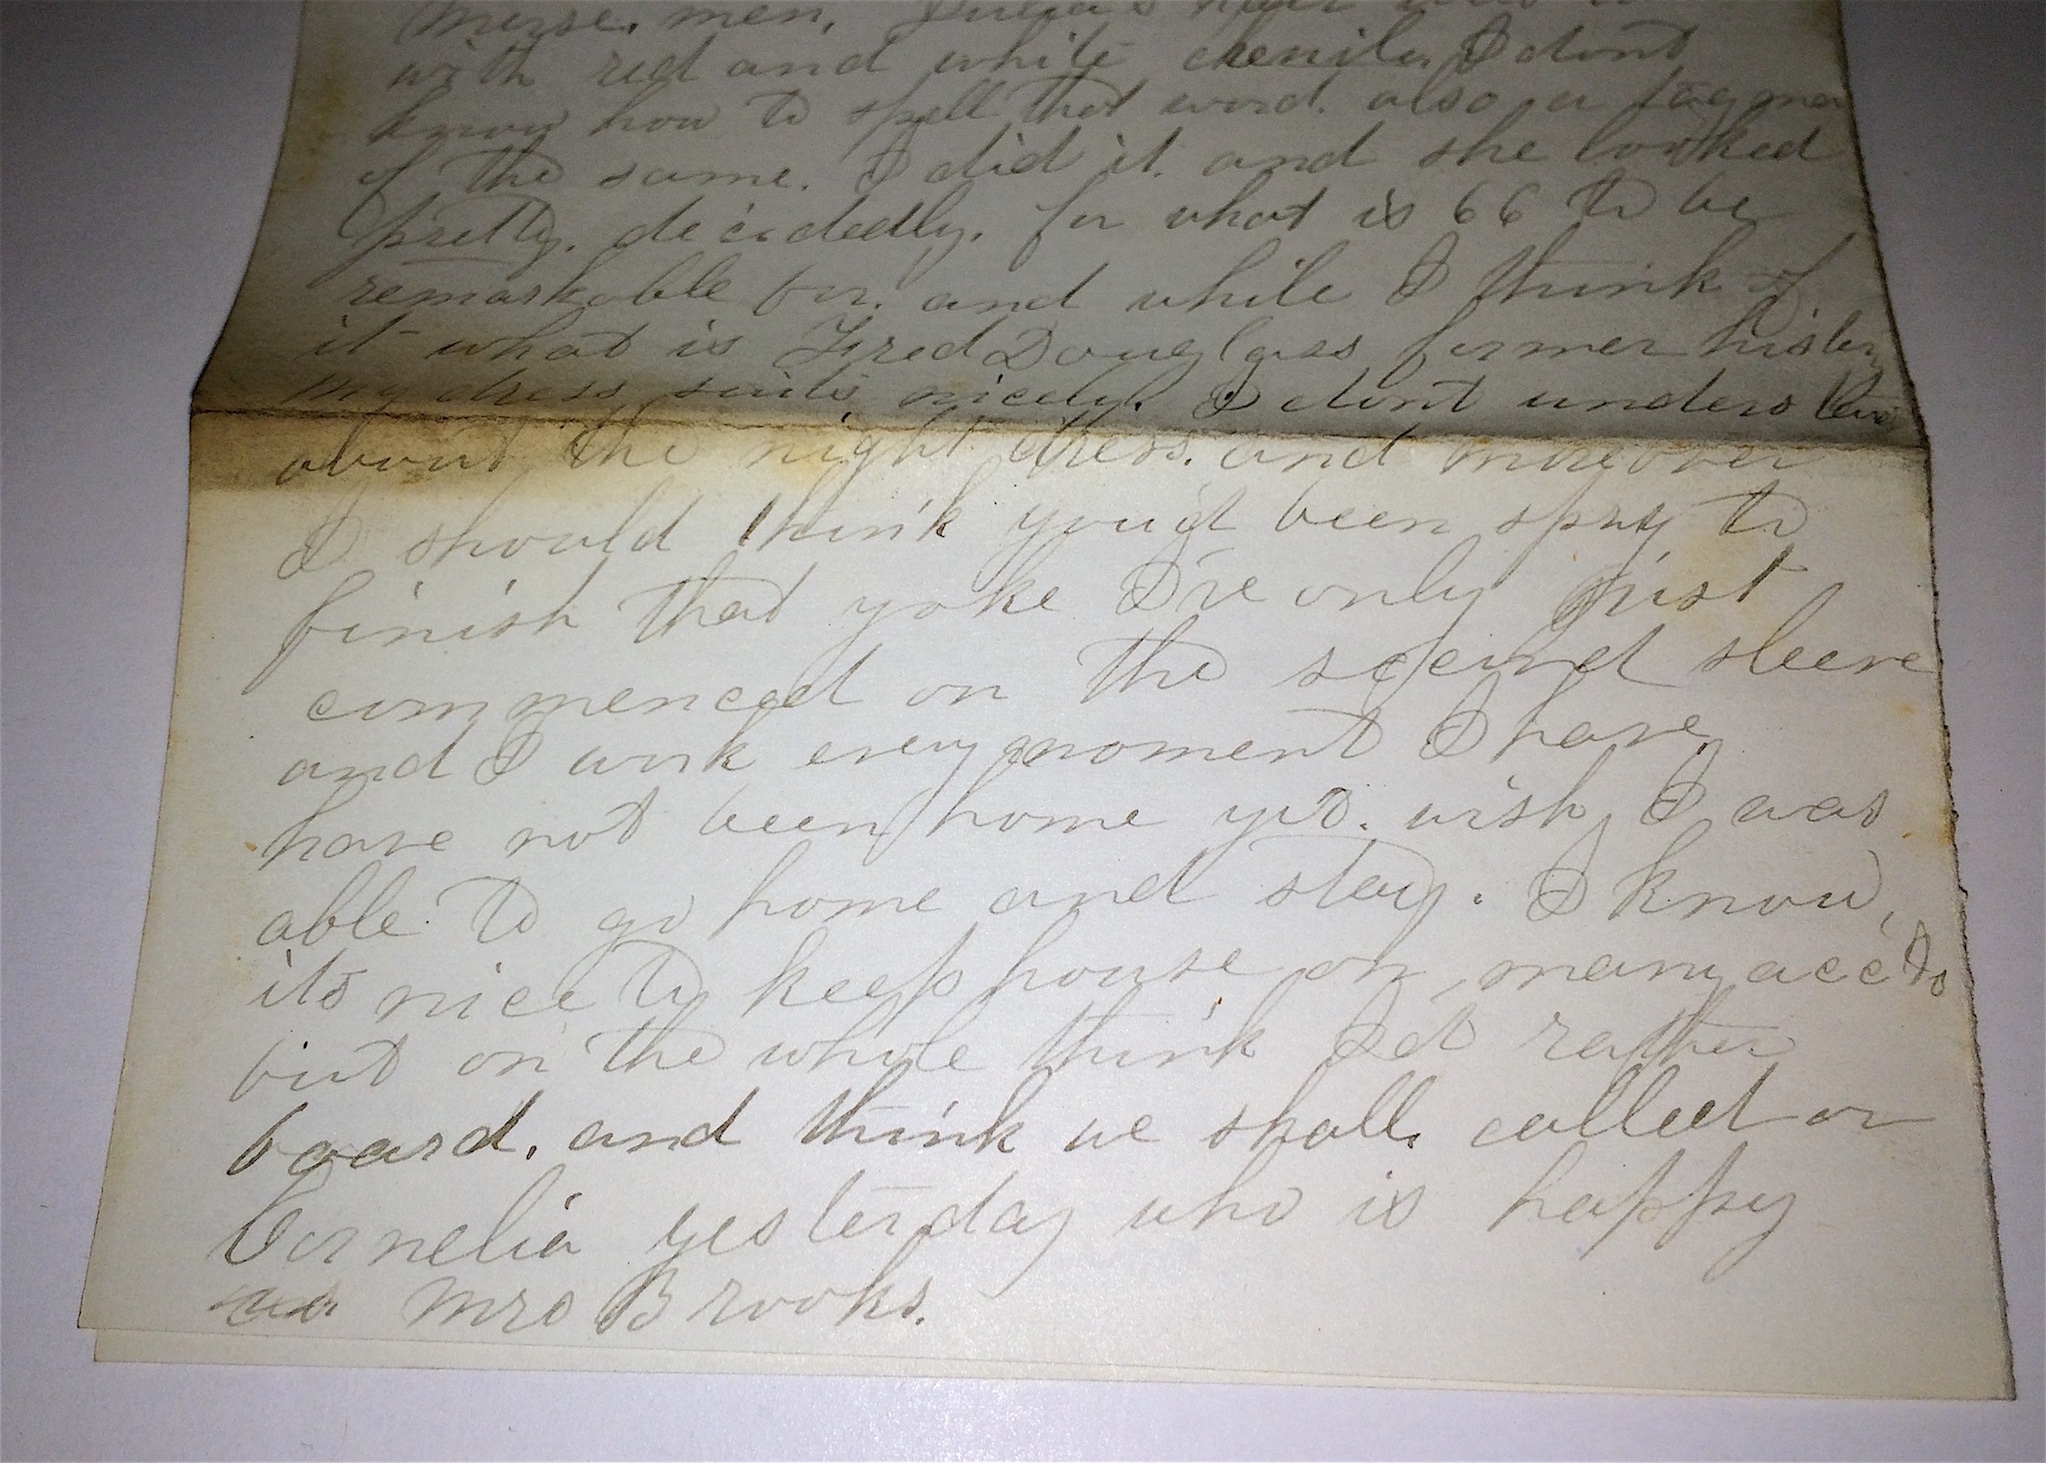 men, Julia's hair was
with red and white chenile, I dont
know how to spell that word. also a
of the same. I did it. and she looked
pretty. decidedly. for what is 66 to be
remarkable for. and while I think of
it what is Fred Douglass former history
my dress suits nicely. I dont understand
about the night dress. and moreover
I should think you'd been spry to
finish that yoke I've only just
commenced on the second sleeve
and I work every moment I have
have not been home yet. wish I was
able to go home and stay. I know,
its nice to keep house on many acc'ts
but on the whole think I'd rather
board. and think we shall. called on
Cornelia yesterday who is happy
as Mrs Brooks.